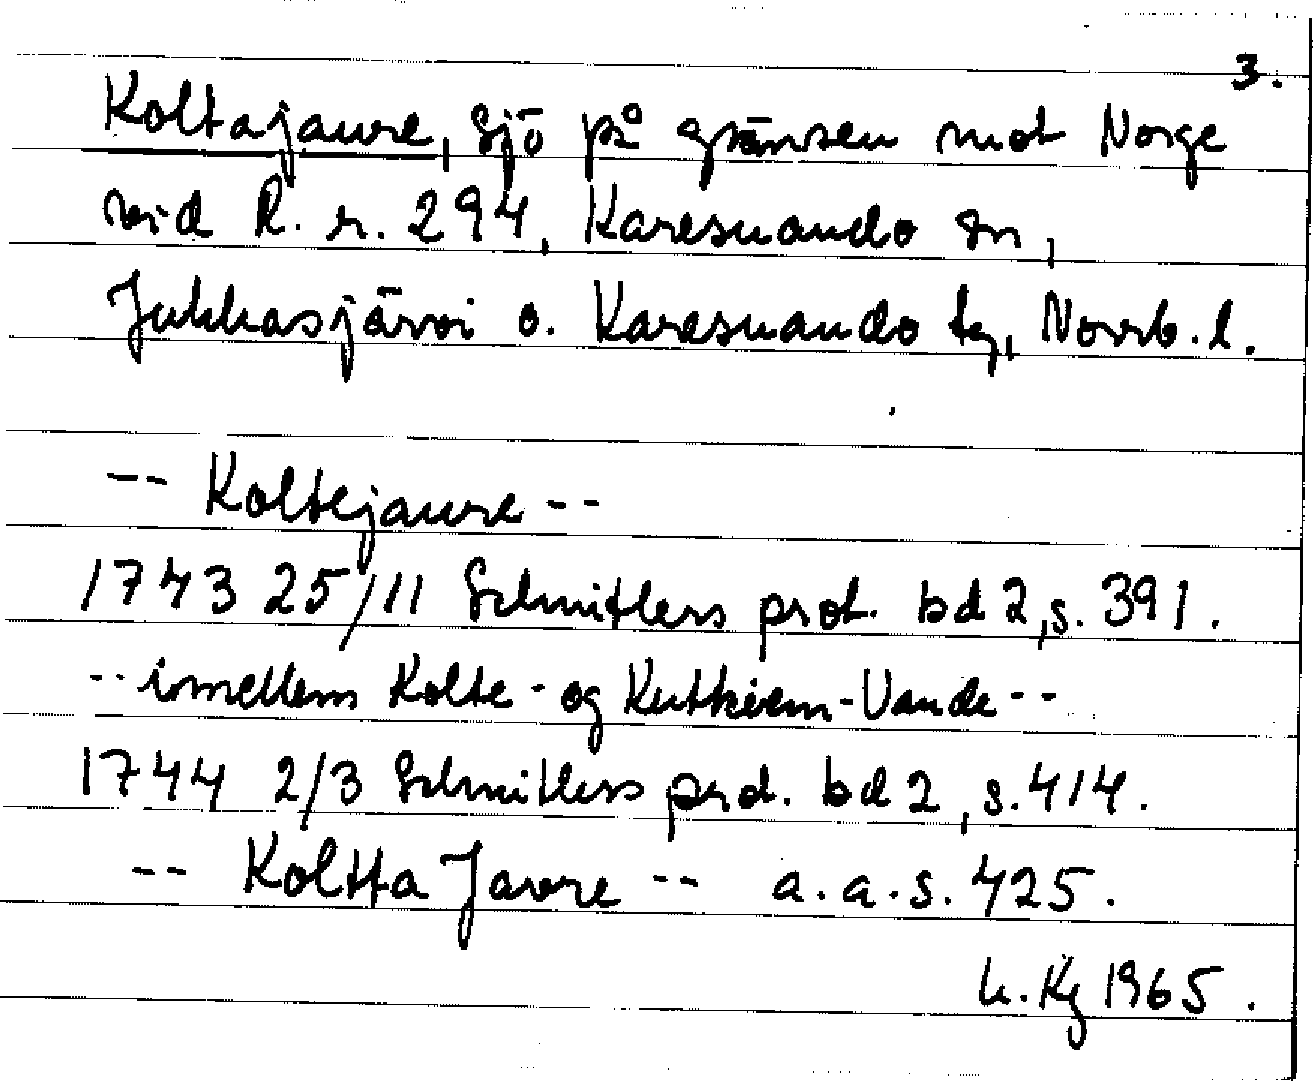 3.
Koltajaure, sjö på gränsen mot Norge
vid R. r. 294, Karesuando sn,
Jukkasjärvi o. Karesuando tg, Norrb. l.
-- Koltejaure --
1743 25/11 Schnitlers prot. bd 2, s. 391.
-- imellem Kolte- og Kutkiem-Vande --
1744 2/3 Schnitlers prot. bd 2, s. 414.
-- Koltta Javre -- a. a. s. 425.
L. Kg 1965.